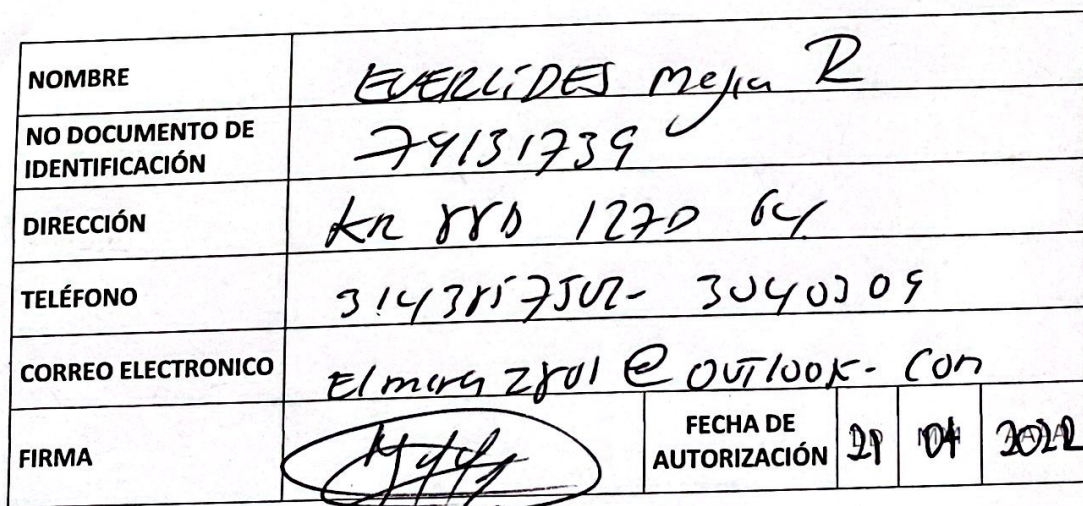 NOMBRE EVERLIDES Mejia R
NO DOCUMENTO DE
IDENTIFICACIÓN 79131739
DIRECCIÓN KR 88D 127D 64
TELÉFONO 3143857502- 3040309
CORREO ELECTRONICO @ OUTLOOK- COM
FIRMA
FECHA DE
AUTORIZACIÓN 21 04 2022